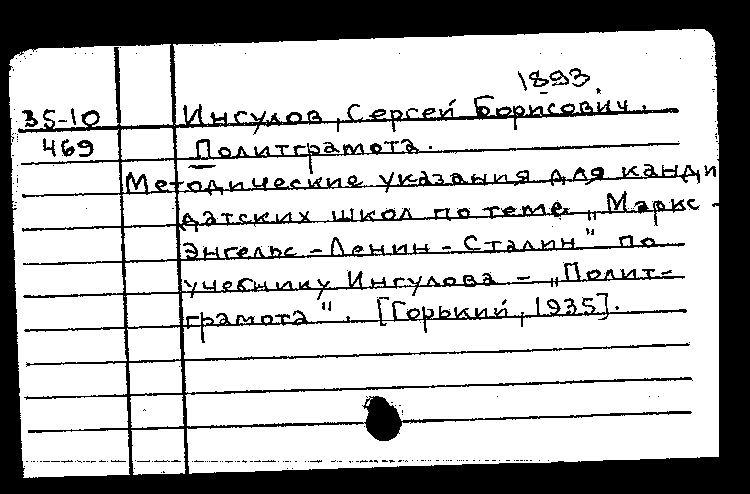 1893.
35-10 Ингулов, Сергей Борисович.
469 Политграмота.
Методические указания для канди
датских школ по теме „Маркс-
Энгельс-Ленин-Сталин" по
учебнику Ингулова - „Полит-
грамота". [Горький, 1935].